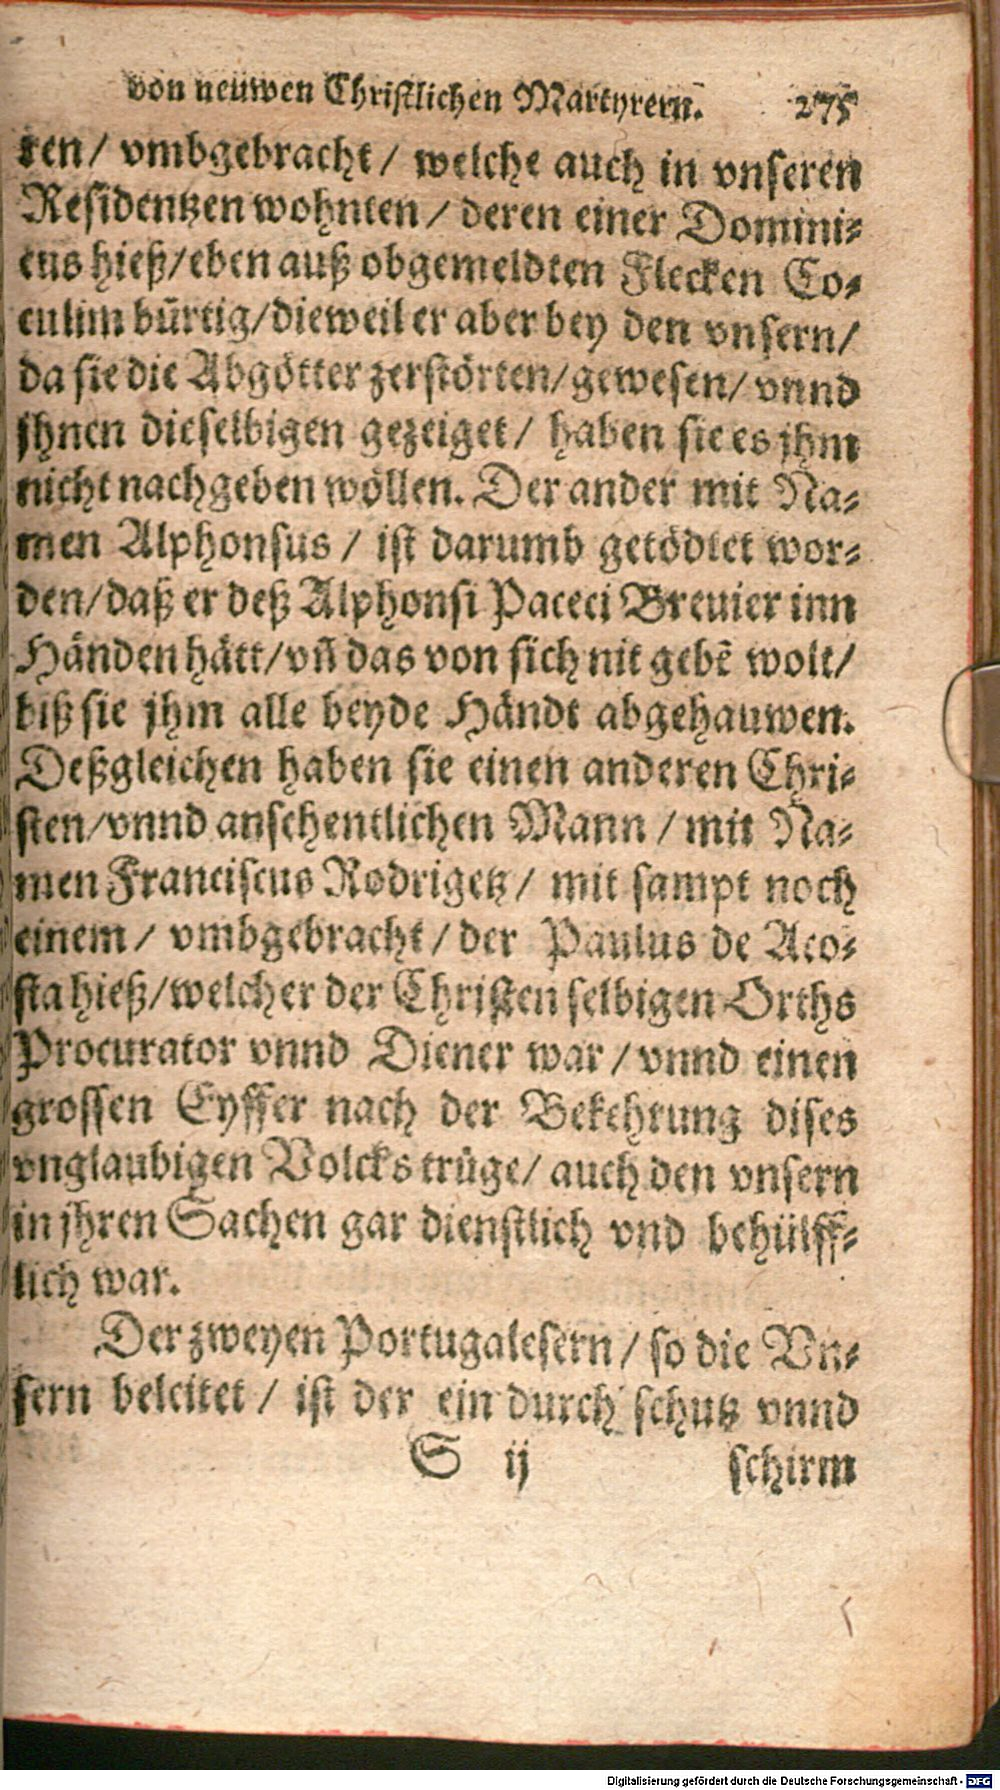 von neuwen Christlichen Martyrern. 275
ren/ vmbgebracht/ welche auch in vnseren
Residentzen wohnten/ deren einer Domini-
cus hieß/ eben auß obgemeldten Flecken Co-
culim bürtig/ dieweil er aber bey den vnsern/
da sie die Abgötter zerstörten/ gewesen/ vnnd
jhnen dieselbigen gezeiget/ haben sie es jhm
nicht nachgeben wöllen. Der ander mit Na-
men Alphonsus/ ist darumb getödtet wor-
den/ daß er deß Alphonsi Paceci Breuier inn
Händen hätt/ vñ das von sich nit gebẽ wolt/
biß sie jhm alle beyde Händt abgehauwen.
Deßgleichen haben sie einen anderen Chri-
sten/ vnnd ansehentlichen Mann/ mit Na-
men Franciscus Rodrigetz/ mit sampt noch
einem/ vmbgebracht/ der Paulus de Aco-
sta hieß/ welcher der Christen selbigen Orths
Procurator vnnd Diener war/ vnnd einen
grossen Eyffer nach der Bekehrung dises
vnglaubigen Volcks trüge/ auch den vnsern
in jhren Sachen gar dienstlich vnd behülff-
lich war.
Der zweyen Portugalesern/ so die Vn-
sern beleitet/ ist der ein durch schutz vnnd
S ij schirm
Digitalisierung gefördert durch die Deutsche Forschungsgemeinschaft - DFG